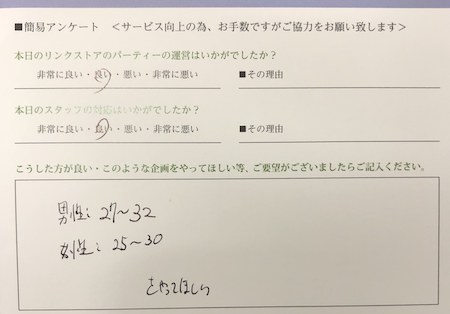 ■簡易アンケート <サービス向上の為、お手数ですがご協力をお願い致します>
本日のリンクストアのパーティーの運営はいかがでしたか？
非常に良い・良い・悪い・非常に悪い ■その理由
本日のスタッフの対応はいかがでしたか？
非常に良い・良い・悪い・非常に悪い ■その理由
こうした方が良い・このような企画をやってほしい等、ご要望がございましたらご記入ください。
男性：27～32
女性：25～30
をやってほしい